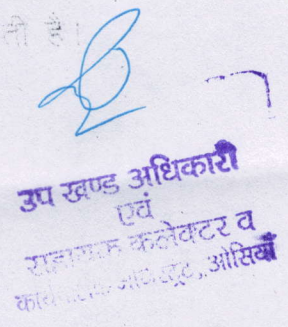 ती है।
उप खण्ड अधिकारी
एवं
सहायक कलेक्टर व
कार्यपालक मजिस्ट्रेट, ओसियाँ